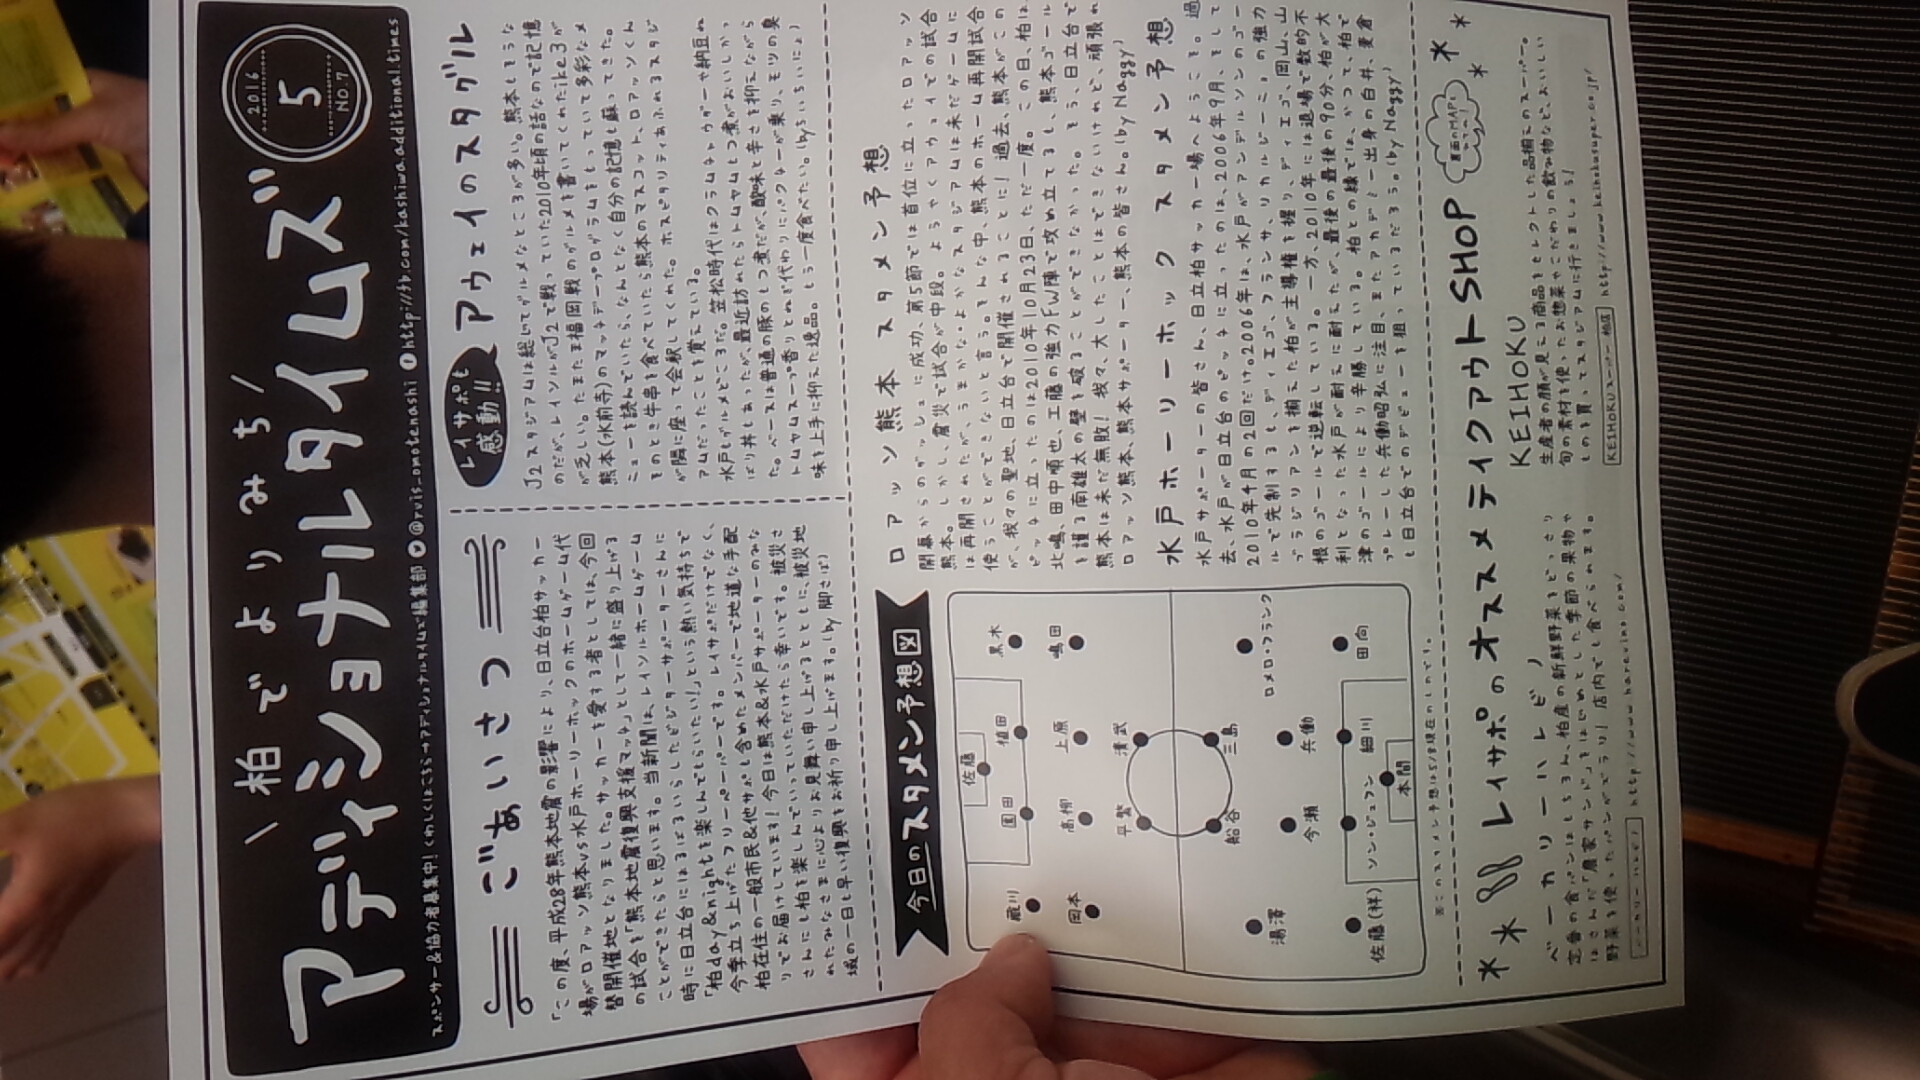 \柏でよりみち/
アディショナルタイムズ
2016
5
NO.7
スポンサー&協力者募集中!くわしくはこちら→アディショナルタイムズ編集部 @rvis_omotenashi http://fb.com/kashiwa.additional.times
ごあいさつ
「この度、平成28年熊本地震の影響により、日立台柏サッカー
場がロアッソ熊本vs水戸ホーリーホックのホームゲーム代
替開催地となりました。サッカーを愛する者としては、今回
の試合を「熊本地震復興支援マッチ」として一緒に盛り上げる
ことができたらと思います。当新聞は、レイソルホームゲーム
時に日立台にはるばるいらしたビジターサポーターさんに
「柏day&nightを楽しんでもらいたい!」という熱い気持ちで
今季立ち上げたフリーペーパーです。レイサポだけでなく、
柏在住の一般市民&他サポも含めたメンバーで地道な手配
りでお届けしています!今日は熊本&水戸サポーターのみな
さんにも柏を楽しんでいっていただけたら幸いです。被災さ
れたみなさまに心よりお見舞い申し上げるとともに、被災地
域の一日も早い復興をお祈り申し上げます。(by 脚さば)
レイサポも
感動!!
アウェイのスタグル
J2スタジアムは総じてグルメなところが多い。熊本もそうな
のだが、レイソルがJ2で戦っていた2010年頃の話なので記憶
が乏しい。たまたま福岡戦のグルメを書いてくれたike3が
熊本(水前寺)のマッチデープログラムをもっていて多彩なメ
ニューを読んでいたら、なんとなく自分の記憶も蘇ってきた。
そのとき牛串を食べていたら熊本のマスコット、ロアッソくん
が隣に座って会釈してくれた。ホスピタリティあふれるスタジ
アムだったことを覚えている。
水戸もグルメどころだ。笠松時代はクラムチャウダーや納豆ね
ばり丼もあったが、最近訪れたらトムヤムもつ煮がおいしかっ
た。ベースは普通の豚のもつ煮だが、酸味と辛さを抑えながら
トムヤムスープ香りとねぎ代わりにパクチーが乗り、モツの臭
味を上手に抑えた逸品。もう一度食べたい。(byちいちにょ)
今日のスタメン予想図
佐藤
黒木
植田
園田
蔵川
嶋田
上原
高柳
岡本
清武
平繁
三島
船谷
ロメロ・フランク
兵働
今瀬
湯澤
田向
細川
ソン・ジュフン
佐藤(祥)
本間
※このスタメン予想は5/8現在のものです。
ロアッソ熊本 スタメン予想
開幕からのダッシュに成功、第5節では首位に立ったロアッソ
熊本。しかし、震災で試合が中段。ようやくアウェイでの試合
は再開されたが、うまかな・よかなスタジアムは未だゲームに
使うことができないと言う。そんな中、熊本のホーム再開試合
が、我々の聖地、日立台で開催されることに!過去、熊本がこの
ピッチに立ったのは2010年10月23日、ただ一度。この日、柏は、
北嶋、田中順也、工藤の強力FW陣で攻め立てるも、熊本ゴール
を護る南雄太の壁を破ることができなかった。そう、日立台で
熊本は未だ無敗!我々、大したことはできないけれど、頑張れ
ロアッソ熊本、熊本サポーター、熊本の皆さん。(by Naggy)
水戸ホーリーホック スタメン予想
水戸サポーターの皆さん、日立柏サッカー場へようこそ。過
去、水戸が日立台のピッチに立ったのは、2006年9月、そして
2010年4月の2回だけ。2006年は、水戸がアンデルソンのゴー
ルで先制するも、ディエゴ、フランサ、リカルジーニョの強力
ブラジリアンを揃えた柏が主導権を握り、ディエゴ、岡山、山
根のゴールで逆転している。一方、2010年には退場で数的不
利となった水戸が耐えに耐えたが、最後の最後の90分、柏が大
津のゴールにより辛勝している。柏との縁では、かつて、柏で
プレーした兵働昭弘に注目、またアカデミー出身の白井、妻倉
も日立台でのデビューを狙っているだろう。(by Naggy)
レイサポのオススメテイクアウトSHOP
裏面のMAP!
ベーカリーハレビノ
定番の食パンはもちろん、柏産の新鮮野菜をどっさり
はさんだ「農家サンド」をはじめとした季節の果物や
野菜を使ったパンがズラリ!店内でも食べられます。
ベーカリーハレビノ http://www.harevino.com/
KEIHOKU
生産者の顔が見える商品をセレクトした品揃えのスーパー。
旬の素材を使ったお惣菜やこだわりの飲み物など、おいしい
ものを買ってスタジアムに行きましょう!
KEIHOKUスーパー 柏店 http://www.keihokusuper.co.jp/